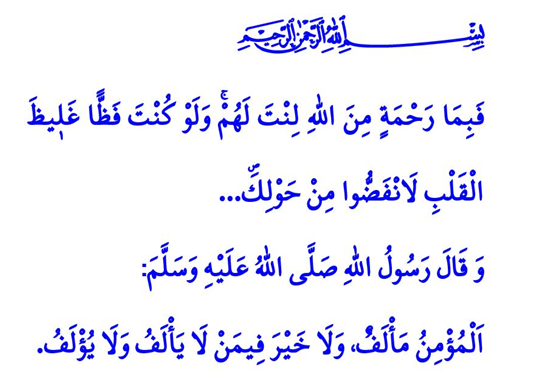 بِسْمِ اللهِ الرَّحْمٰنِ الرَّحِيمِ
فَبِمَا رَحْمَةٍ مِنَ اللهِ لِنْتَ لَهُمْۚ وَلَوْ كُنْتَ فَظًّا غَلٖيظَ
الْقَلْبِ لَانْفَضُّوا مِنْ حَوْلِكَۖ...
وَ قَالَ رَسُولُ اللهِ صَلَّى اللهُ عَلَيْهِ وَسَلَّمَ:
اَلْمُؤْمِنُ مَأْلَفٌ، وَلَا خَيْرَ فِيمَنْ لَا يَأْلَفُ وَلَا يُؤْلَفُ.